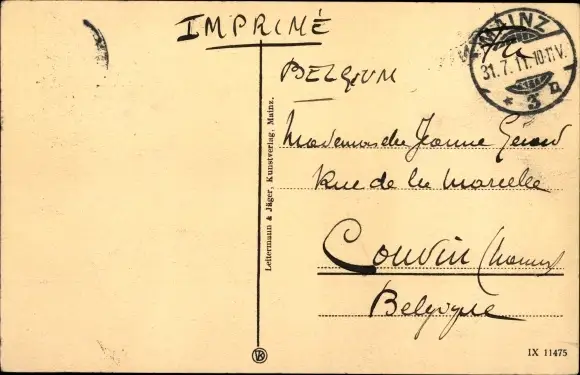 IMPRIMÉ
MAINZ
31.7.11.10-11V.
* 3 n
BELGIUM
Mademoiselle Jeanne Gérard
Rue de la Marcelle
Couvin (Namur)
Belgique
Leitermann & Jäger, Kunstverlag, Mainz.
IX 11475